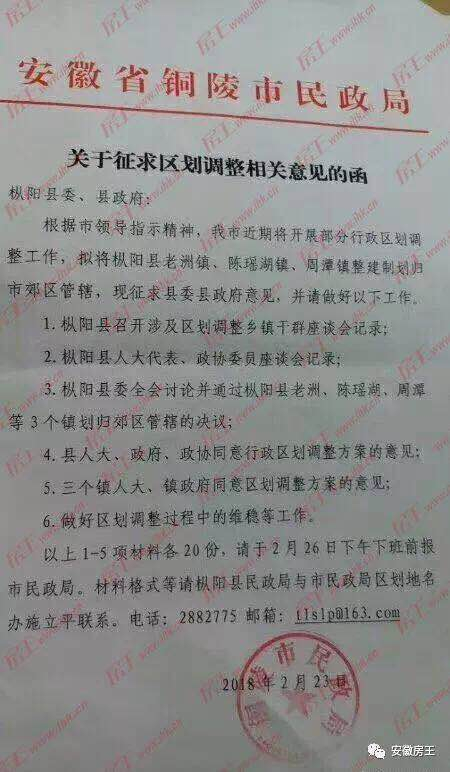 安徽省铜陵市民政局
关于征求区划调整相关意见的函
枞阳县委、县政府:
根据市领导指示精神，我市近期将开展部分行政区划调
整工作，拟将枞阳县老洲镇、陈瑶湖镇、周潭镇整建制划归
市郊区管辖，现征求县委县政府意见，并请做好以下工作。
1.枞阳县召开涉及区划调整乡镇干群座谈会记录;
2.枞阳县人大代表、政协委员座谈会记录;
3.枞阳县委全会讨论并通过枞阳县老洲、陈瑶湖、周潭
等3个镇划归郊区管辖的决议;
4.县人大、政府、政协同意行政区划调整方案的意见;
5.三个镇人大、镇政府同意区划调整方案的意见;
6.做好区划调整过程中的维稳等工作。
以上1-5项材料各20份，请于2月26日下午下班前报
市民政局。材料格式等请枞阳县民政局与市民政局区划地名
办施立平联系。电话: 2882775 邮箱: tlslp@163.com
2018年2月23日
铜陵市民政局
安徽房王
房王 www.ihk.cn